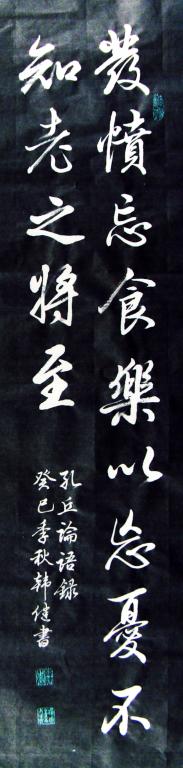 發憤忘食樂以忘憂不
知老之將至
孔丘論語錄
癸巳季秋韩健書